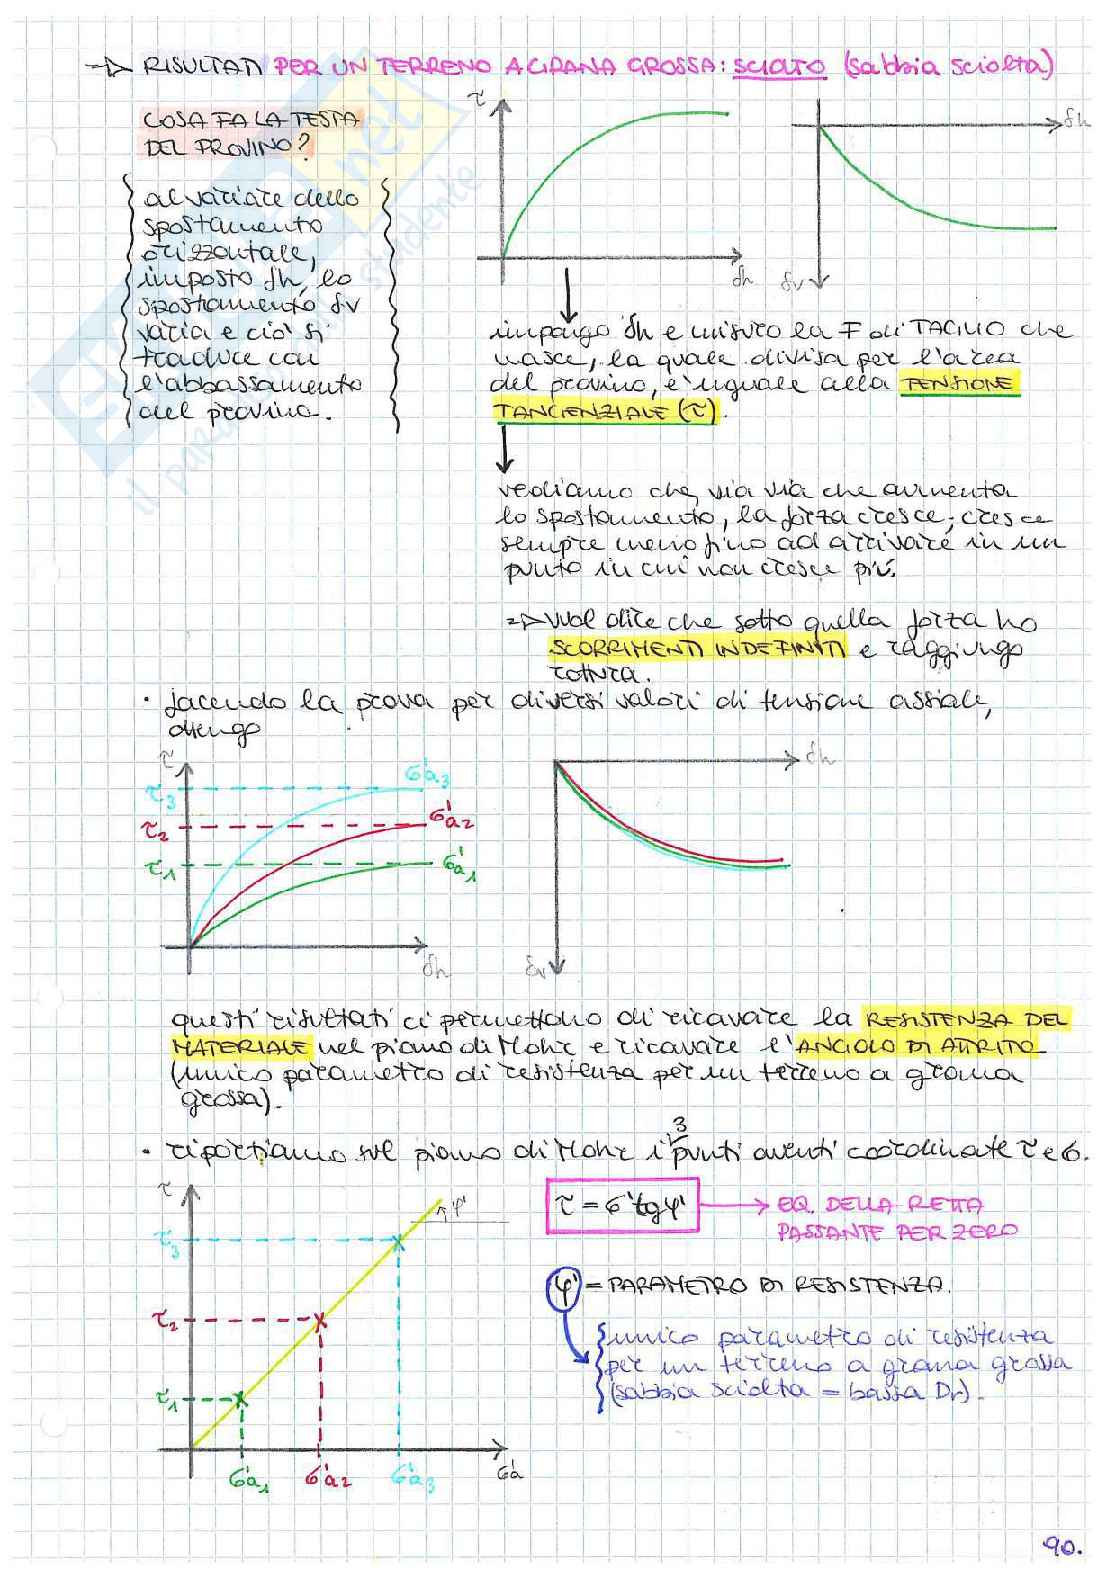 → RISULTATI PER UN TERRENO A GRANA GROSSA: SCIOLTO (sabbia sciolta)
COSA FA LA TESTA
DEL PROVINO?
al variare dello
spostamento
orizzontale,
imposto δh, lo
spostamento δv
varia e ciò si
traduce con
l'abbassamento
del provino.
τ
δh
δh
δv
impongo δh e misuro la F di TAGLIO che
nasce, la quale divisa per l'area
del provino, è uguale alla TENSIONE
TANGENZIALE (τ).
vediamo che, via via che aumenta
lo spostamento, la forza cresce; cresce
sempre meno fino ad arrivare in un
punto in cui non cresce più.
=> vuol dire che sotto quella forza ho
SCORRIMENTI INDEFINITI e raggiungo
rottura.
• facendo la prova per diversi valori di tensione assiale,
ottengo
τ
τ3
τ2
τ1
σ'a3
σ'a2
σ'a1
δh
δh
δv
questi risultati ci permettono di ricavare la RESISTENZA DEL
MATERIALE nel piano di Mohr e ricavare l'ANGOLO DI ATTRITO
(unico parametro di resistenza per un terreno a grana
grossa).
• riportiamo sul piano di Mohr i 3 punti aventi coordinate τ e σ.
τ
φ'
τ3
τ2
τ1
σ'a1
σ'a2
σ'a3
σ'a
τ = σ' tg φ' → EQ. DELLA RETTA
PASSANTE PER ZERO
φ' = PARAMETRO DI RESISTENZA.
unico parametro di resistenza
per un terreno a grana grossa
(sabbia sciolta = bassa Dr).
90.